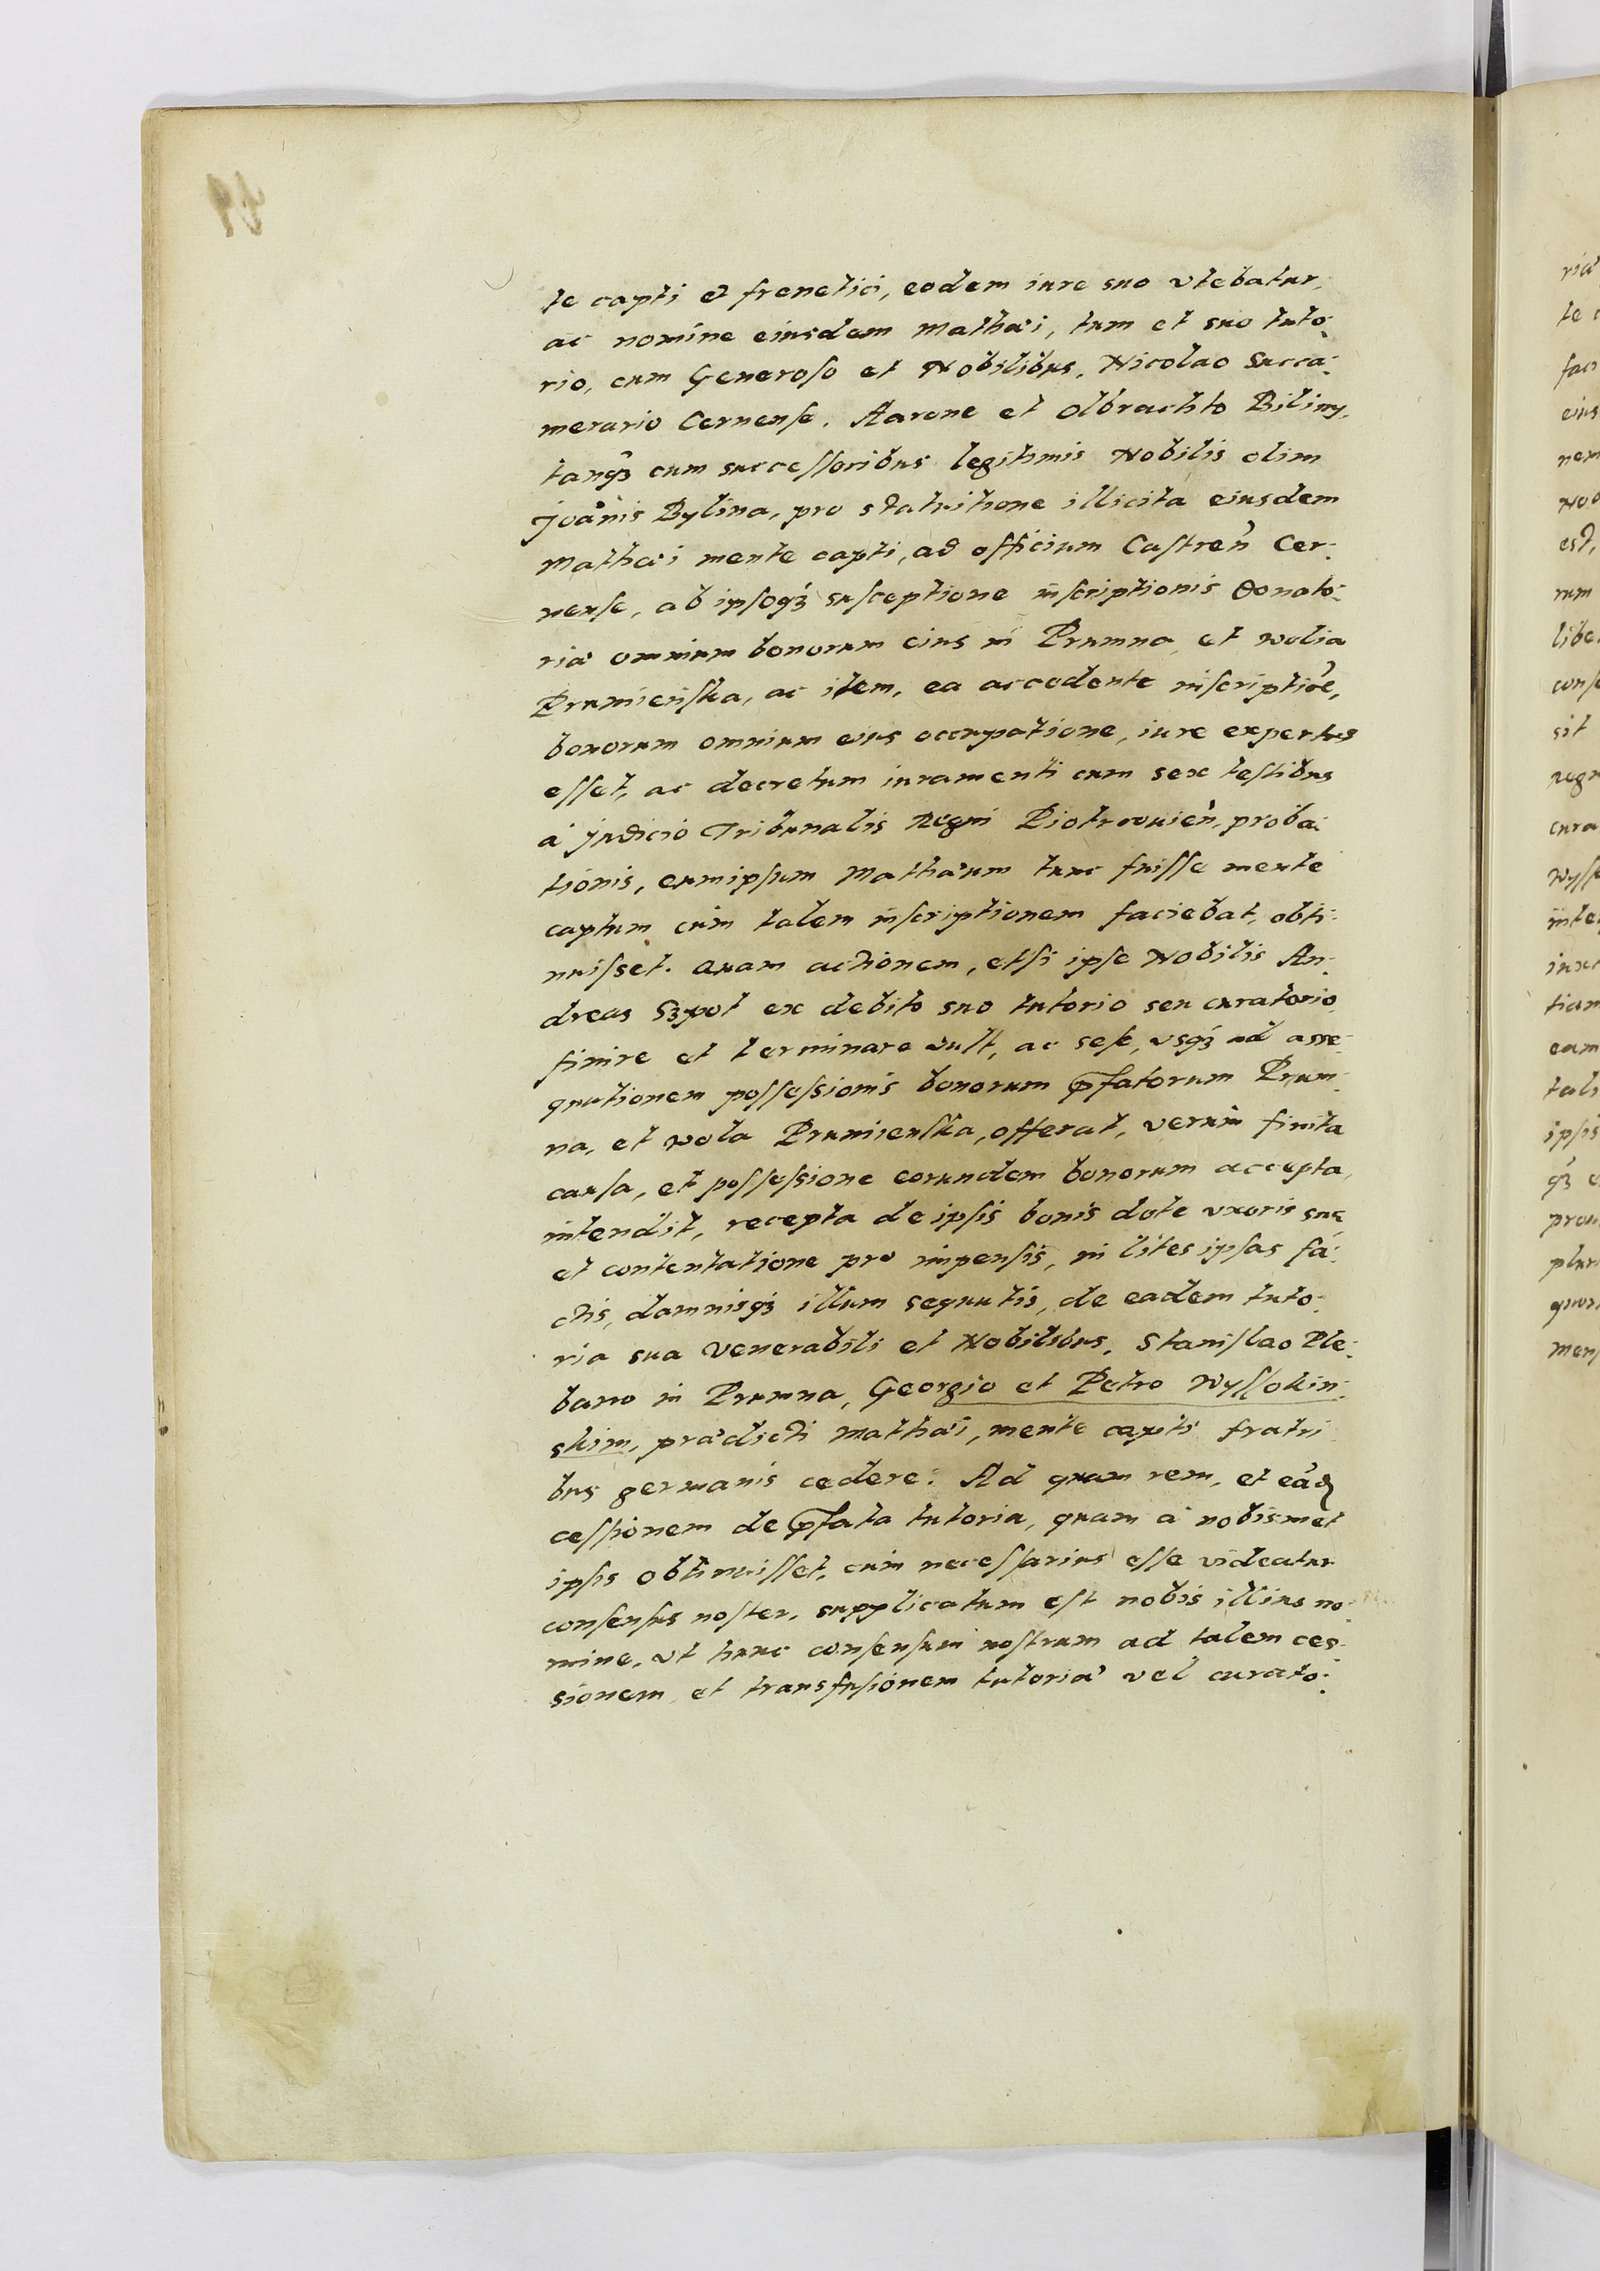 te capti et frenetici, eodem iure suo vtebatur,
ac nomine eiusdem Mathæi, tum et suo tuto-
rio, cum Generoso et Nobilibus, Nicolao Succa-
merario Cernense, Aarone et Olbrachto Biliny,
tanqз cum successoribus legitimis Nobilis olim
Joānis Bylina, pro statuitione illicita eiusdem
Mathæi mente capti, ad officium Castreñ Cer-
nense, ab ipsoqз susceptione inscriptionis donato-
riæ omnium bonorum eius in Prumna et wolia
Prumieńska, ac item, ea accedente inscriptiōe,
bonorum omnium eius occupatione, iure expertus
esset, ac decretum iuramenti cum sex testibus
à Judicio Tribunalis Regni Piotrcouień, proba-
tionis, eumipsum Mathæum tunc fuisse mente
captum cùm talem inscriptionem faciebat, obti-
nuisset. Quam actionem, etsi ipse Nobilis An-
dreas Szpot ex debito suo tutorio seu curatorio
finire et terminare vult, ac sese, vsqз ad asse-
qnutionem possessionis bonorum p̄fatorum Prum-
na, et wola Prumienska, offerat, verùm finita
causa, et possessione eorundem bonorum accepta,
intendit, recepta de ipsis bonis dote vxoris suæ
et contentatione pro impensis, in lites ipsas fa-
ctis, damnisqз illum sequutis, de eadem tuto-
ria sua Venerabili et Nobilibus, Stanislao Ple-
bano in Prumna, Georgio et Petro Wyssokin-
skim, prædicti Mathæi, mente capti fratri
bus germanis cedere: Ad quam rem, et eād
cessionem de p̄fata tutoria, quam à nobismet
ipsis obtinuisset, cùm necessarius esse videatur
consensus noster, supplicatum est nobis illius no-
mine, vt hunc consensum nostrum ad talem ces-
sionem et transfusionem tutoriæ vel curato-